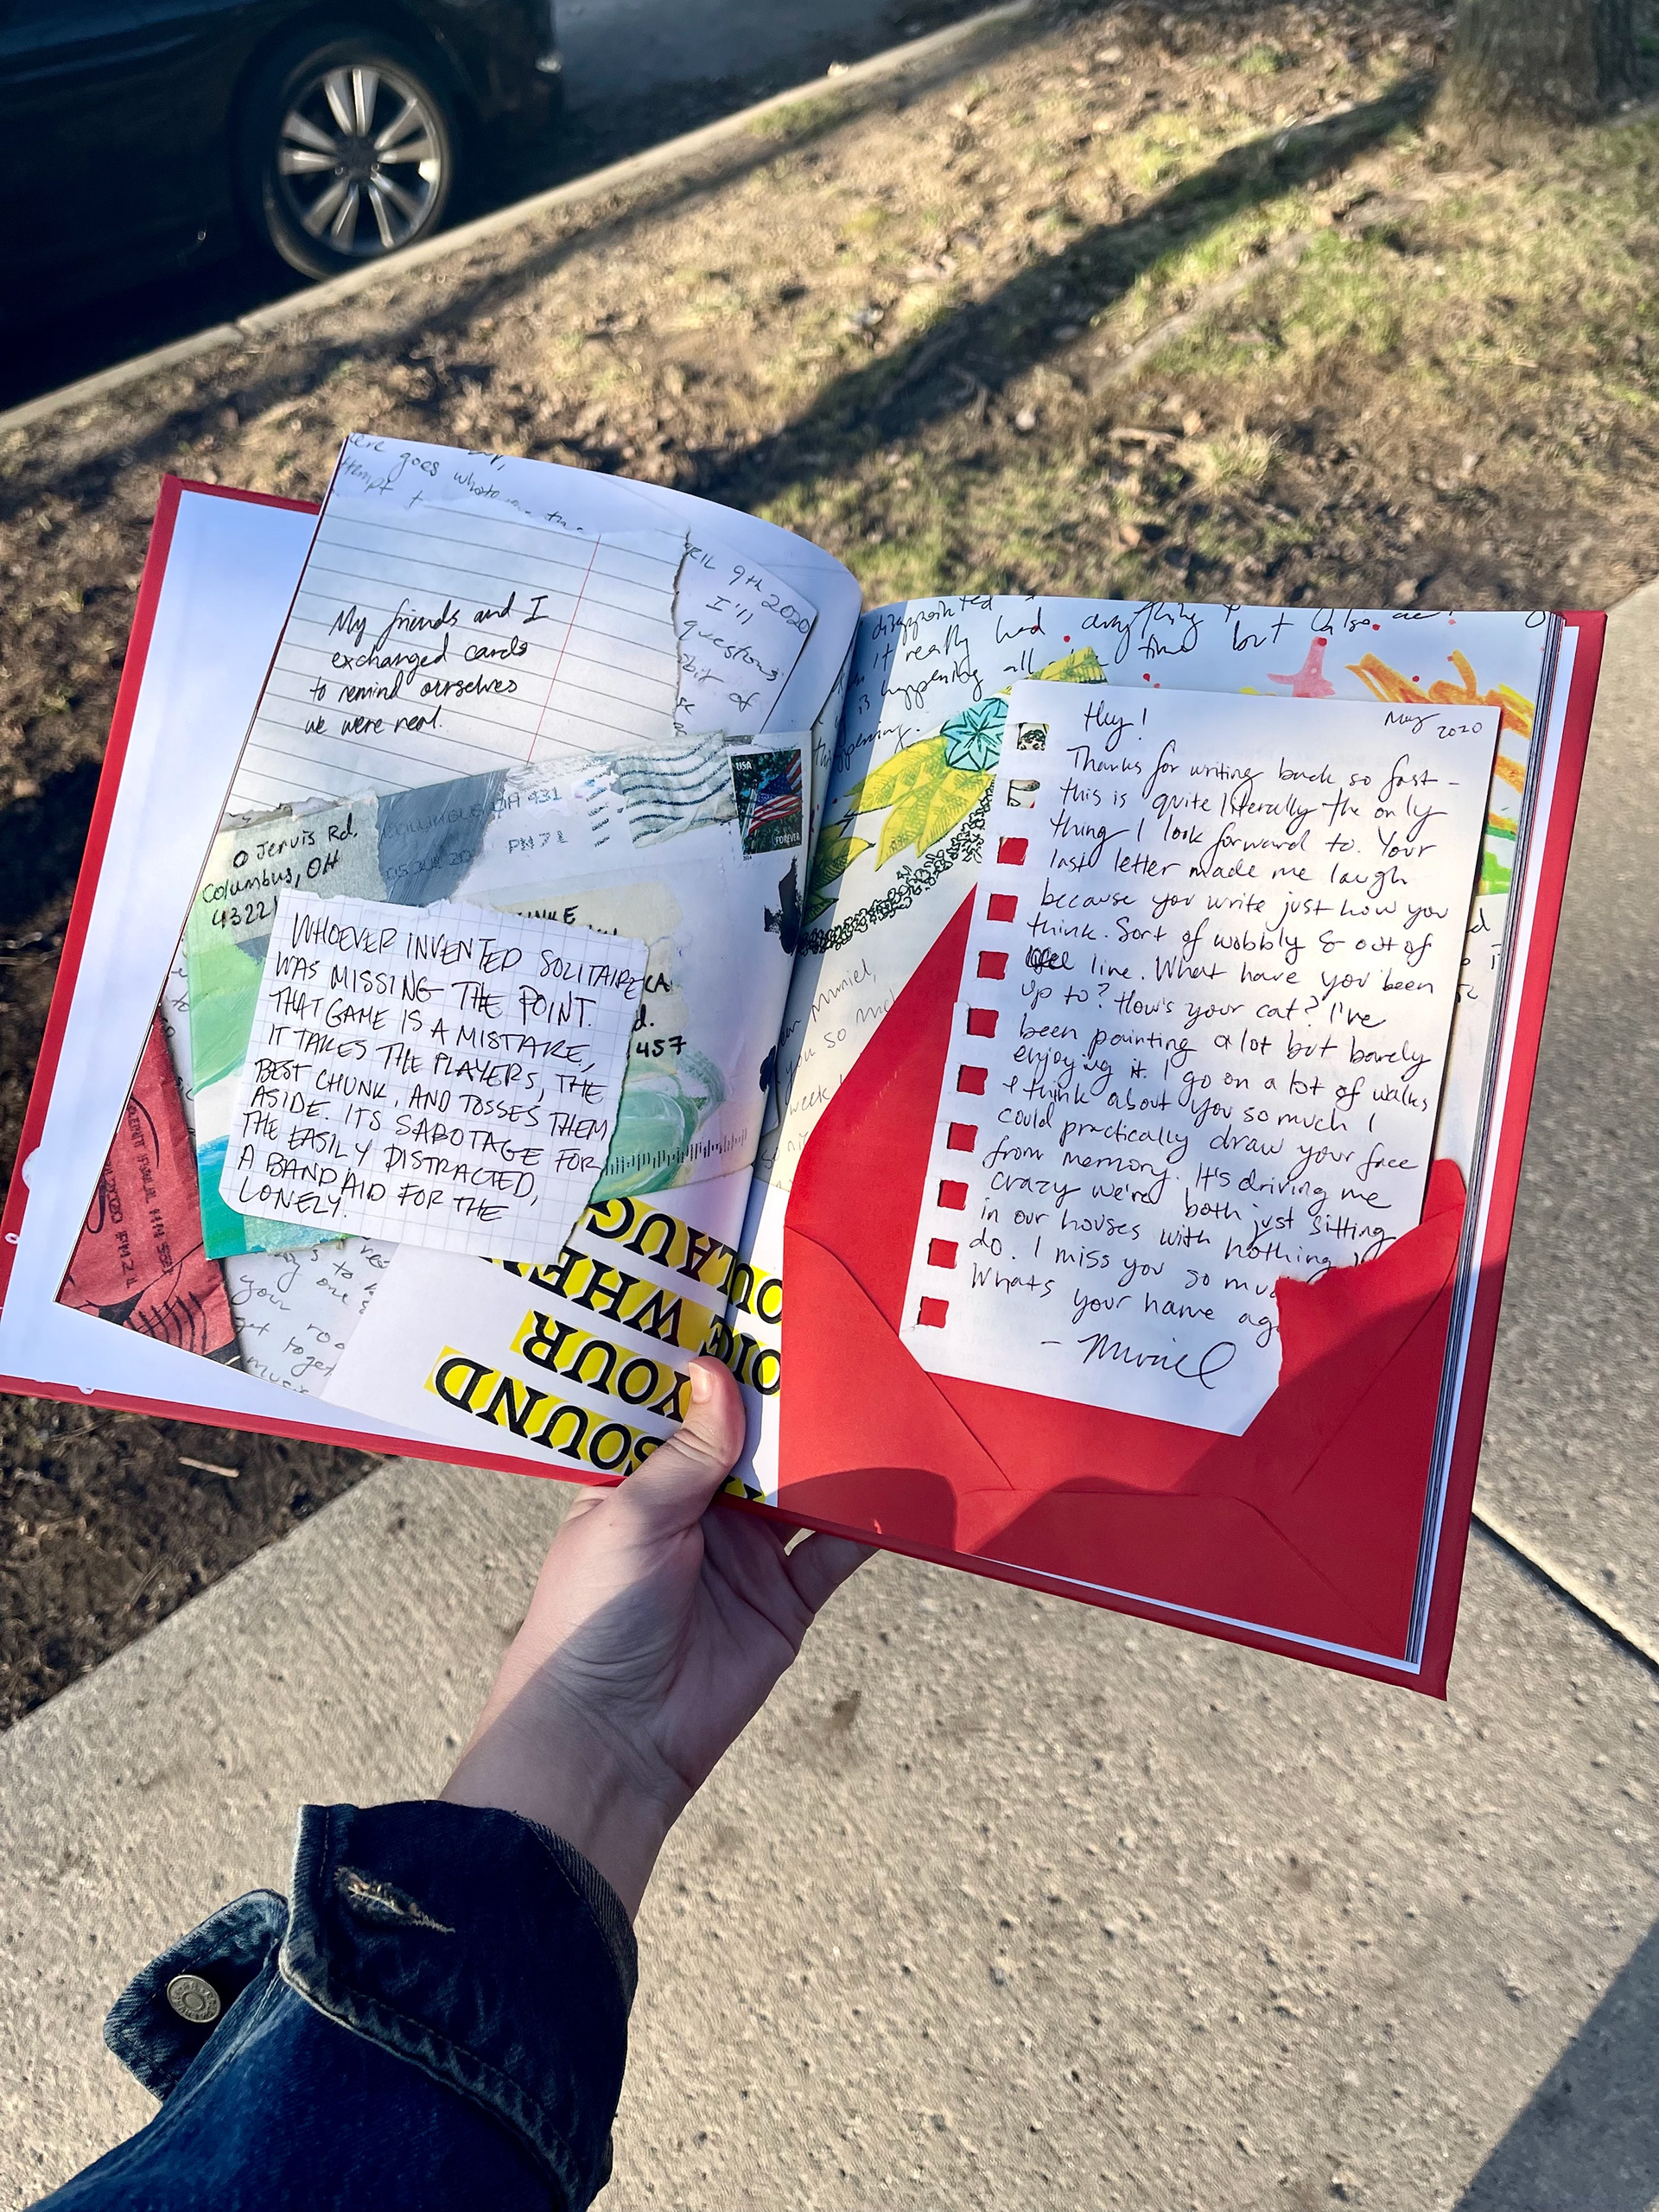 ere goes whate
ttempt t
9th 2020
I'll
questions
bit of
My friends and I
exchanged cards
to remind ourselves
we were real.
USA
FOREVER
PM 7 1
Jervis Rd.
Columbus, OH
4322
457
WHOEVER INVENTED SOLITAIRE
WAS MISSING THE POINT.
THAT GAME IS A MISTAKE,
IT TAKES THE PLAYERS, THE
BEST CHUNK, AND TOSSES THEM
ASIDE. ITS SABOTAGE FOR
THE EASILY DISTRACTED,
A BANDAID FOR THE
LONELY.
SOUND
YOUR
WHE
OU LAUG
disappointed
it really had anything t but also
is happening all time
happening.
muriel,
you so muc
week
Hey! May 2020
Thanks for writing back so fast -
this is quite literally the only
thing I look forward to. Your
last letter made me laugh
because you write just how you
think. Sort of wobbly & out of
line. What have you been
up to? How's your cat? I've
been painting a lot but barely
enjoying it. I go on a lot of walks
& think about you so much I
could practically draw your face
from memory. It's driving me
crazy we're both just sitting
in our houses with nothing
do. I miss you so mu
Whats your name ag
- Muriel